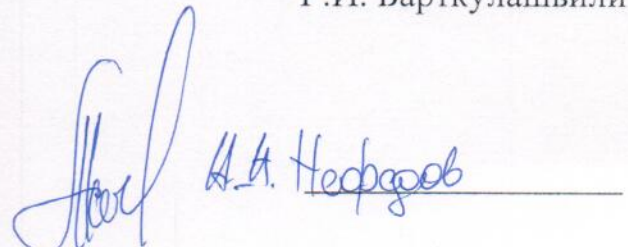 Г.И. Барткулашвили
Н.Н. Нефедов